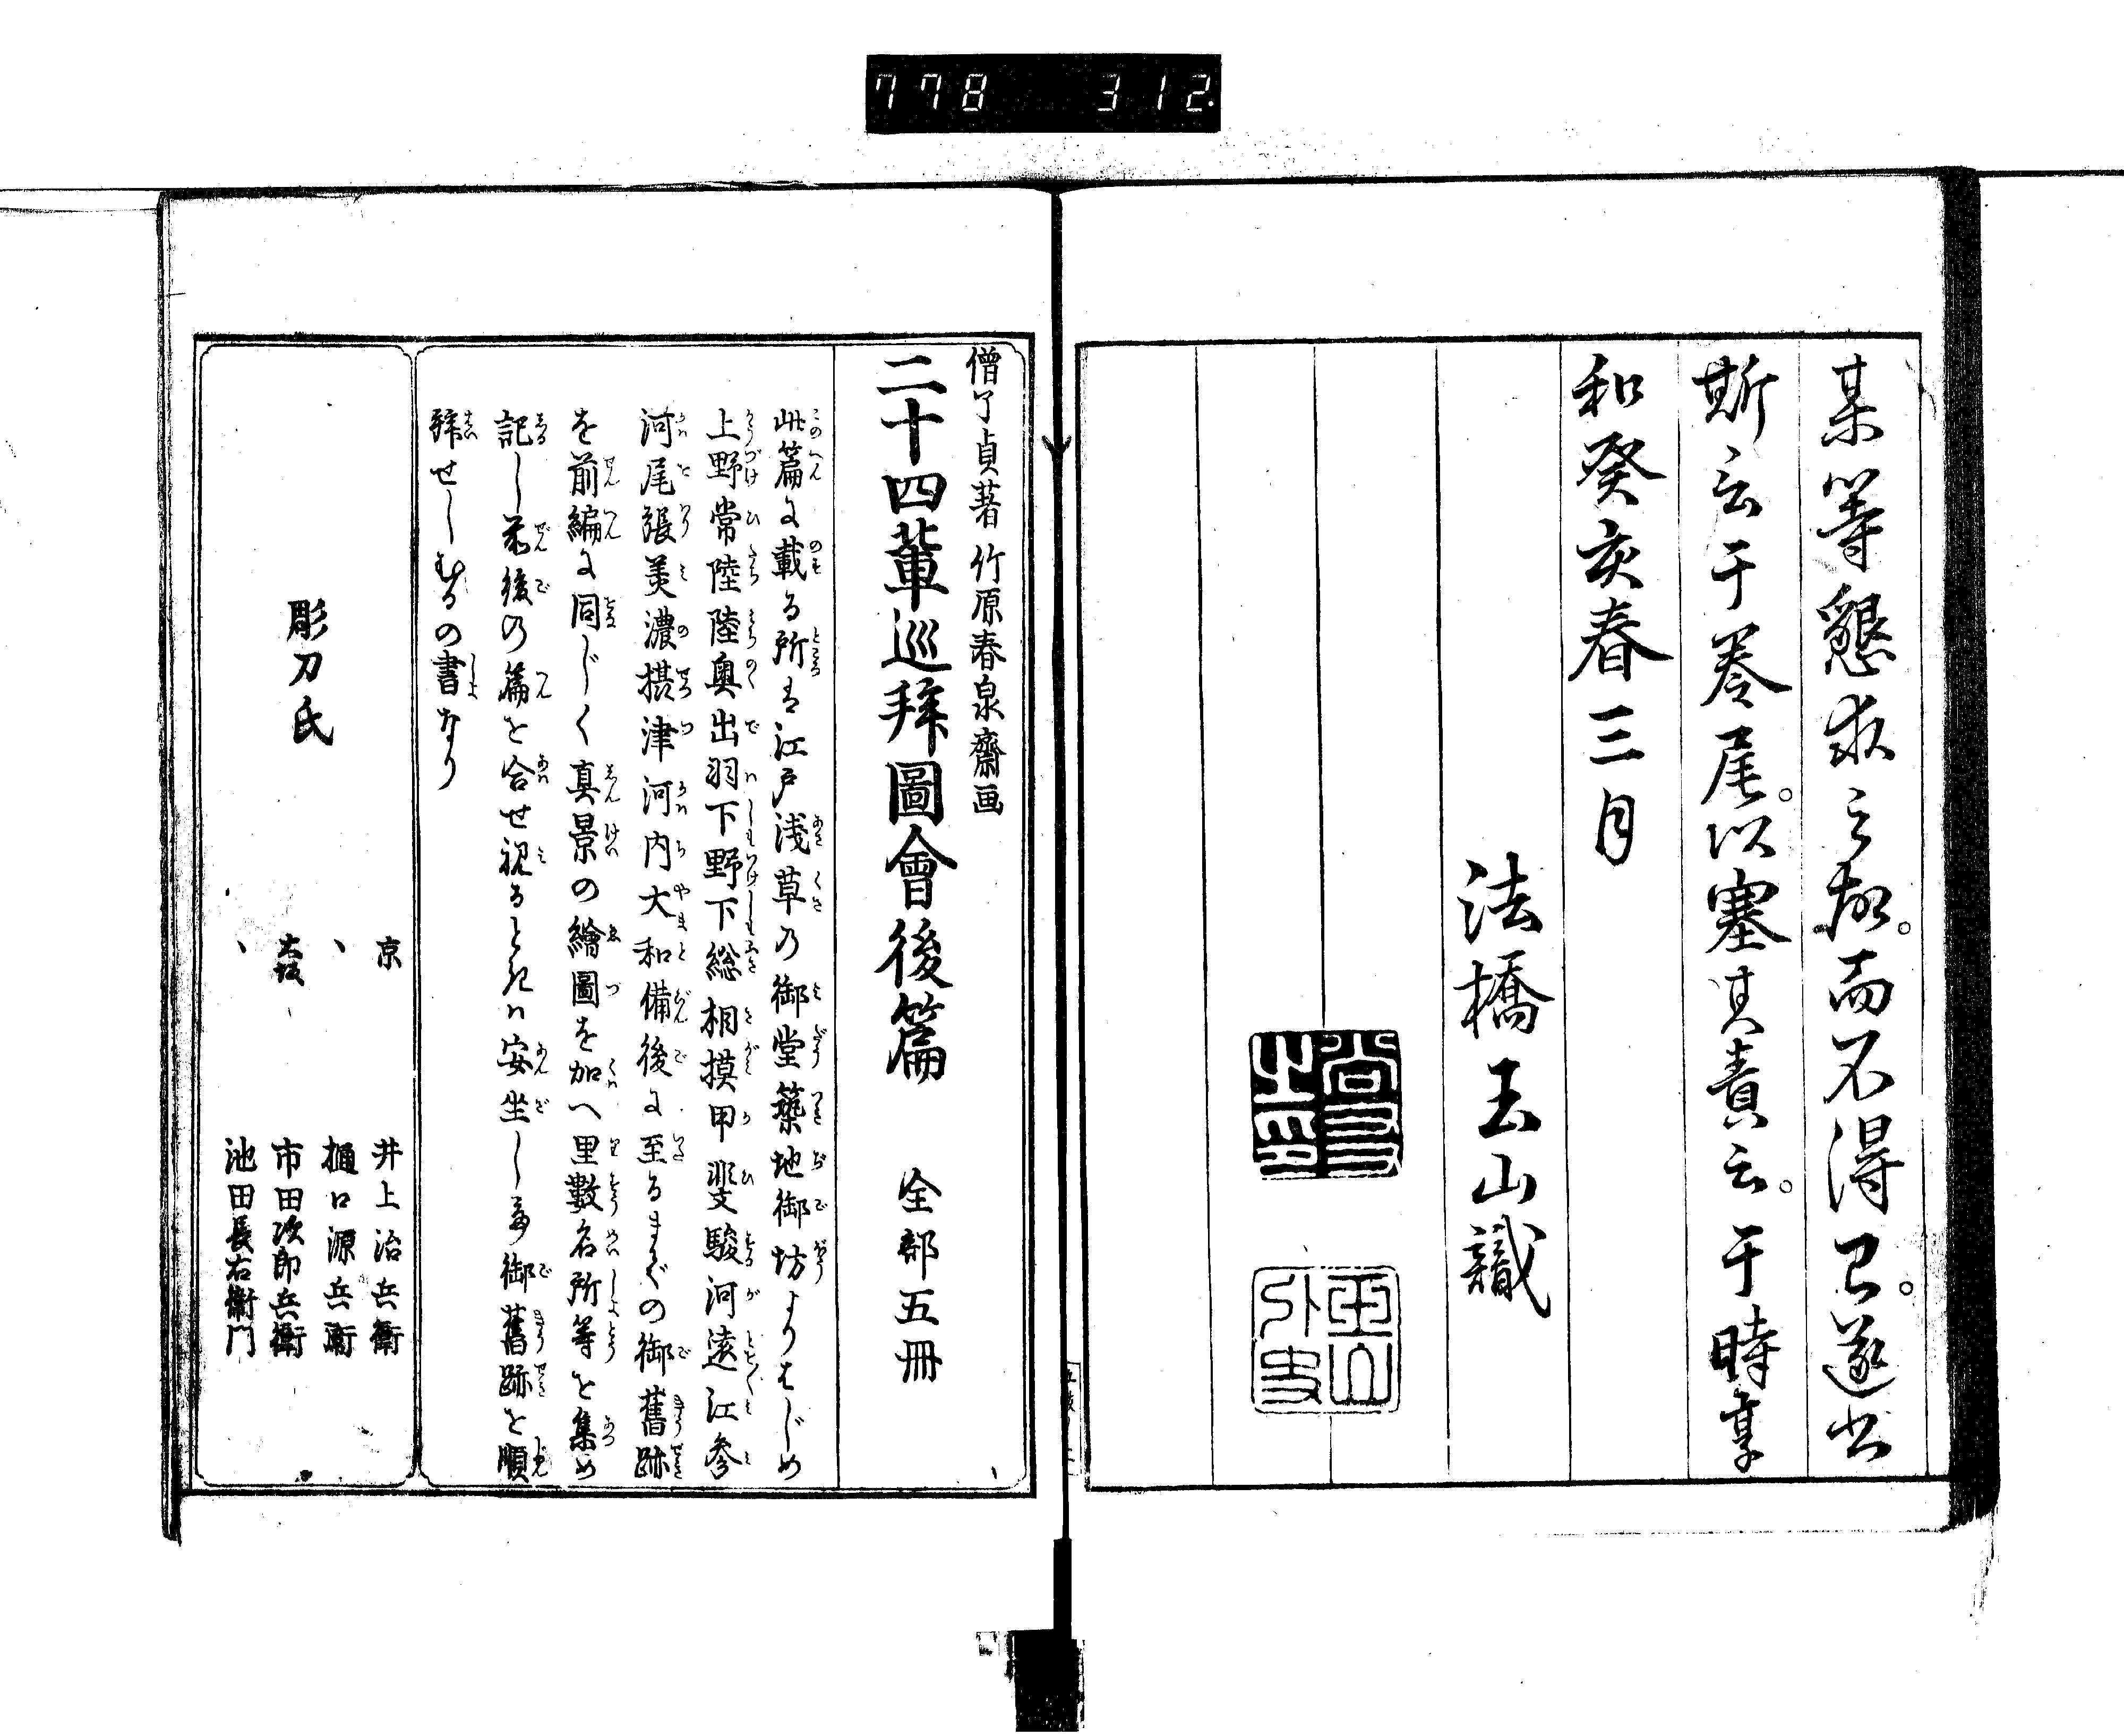 778 312
某等懇求之切。而不得已。遂書
斯言于巻尾。以塞其責云。于時享
和癸亥春三月
法橋玉山識
尚友之印
玉山外史
僧了貞著 竹原春泉齋画
二十四輩巡拜圖會後篇 全部五冊
此篇に載る所は江戸浅草の御堂築地御坊よりはじめ
上野常陸陸奥出羽下野下総相摸甲斐駿河遠江参
河尾張美濃摂津河内大和備後に至るまでの御舊跡
を前編に同じく真景の繪圖を加へ里數名所等を集め
記し前後の篇を合せ視るときは安坐して御舊跡を順
拜せしむるの書なり
彫刀氏
京 井上治兵衛
、 樋口源兵衛
大坂 市田次郎兵衛
、 池田長右衛門